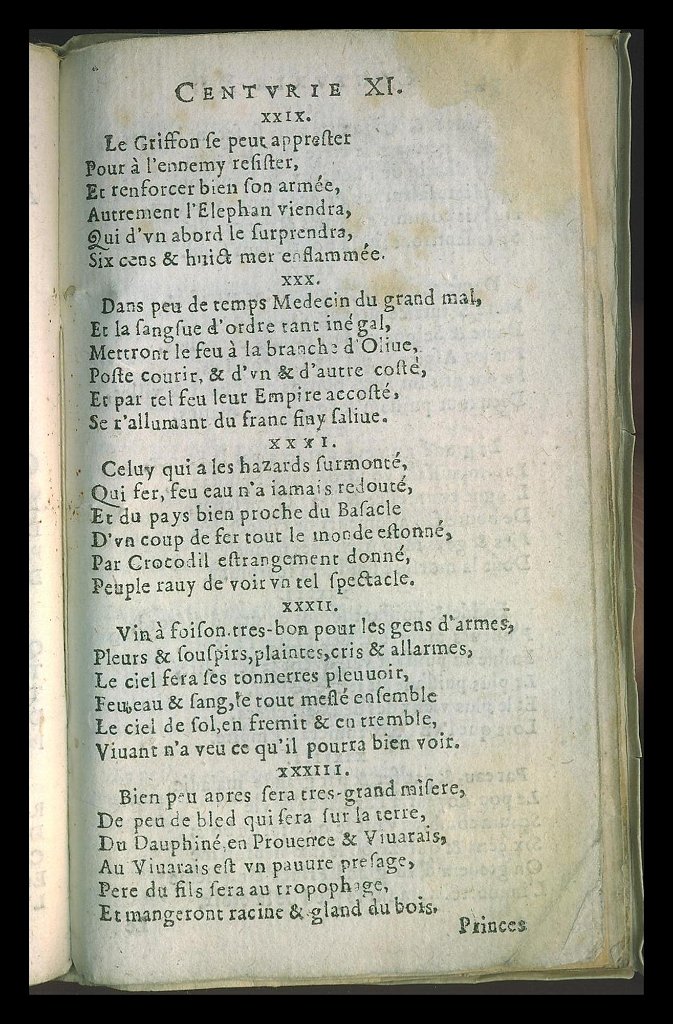 CENTVRIE XI.
XXIX.
Le Griffon ſe peut appreſter
Pour à l'ennemy reſiſter,
Et renforcer bien ſon armée,
Autrement l'Elephan viendra,
Qui d'vn abord le ſurprendra,
Six cens & huict mer enflammée.
XXX.
Dans peu de temps Medecin du grand mal,
Et la ſangſue d'ordre tant inégal,
Mettront le feu à la branche d'Oliue,
Poſte courir, & d'vn & d'autre coſté,
Et par tel feu leur Empire accoſté,
Se r'allumant du franc finy ſaliue.
XXXI.
Celuy qui a les hazards ſurmonté,
Qui fer, feu eau n'a iamais redouté,
Et du pays bien proche du Baſacle
D'vn coup de fer tout le monde eſtonné,
Par Crocodil eſtrangement donné,
Peuple rauy de voir vn tel ſpectacle.
XXXII.
Vin à foiſon.tres-bon pour les gens d'armes,
Pleurs & ſouſpirs,plaintes,cris & allarmes,
Le ciel fera ſes tonnerres pleuuoir,
Feu,eau & ſang,le tout meſlé enſemble
Le ciel de ſol,en fremit & en tremble,
Viuant n'a veu ce qu'il pourra bien voir.
XXXIII.
Bien peu apres ſera tres-grand miſere,
De peu de bled qui ſera ſur la terre,
Du Dauphiné,en Prouence & Viuarais,
Au Viuarais eſt vn pauure preſage,
Pere du fils ſera au tropophage,
Et mangeront racine & gland du bois.
Princes